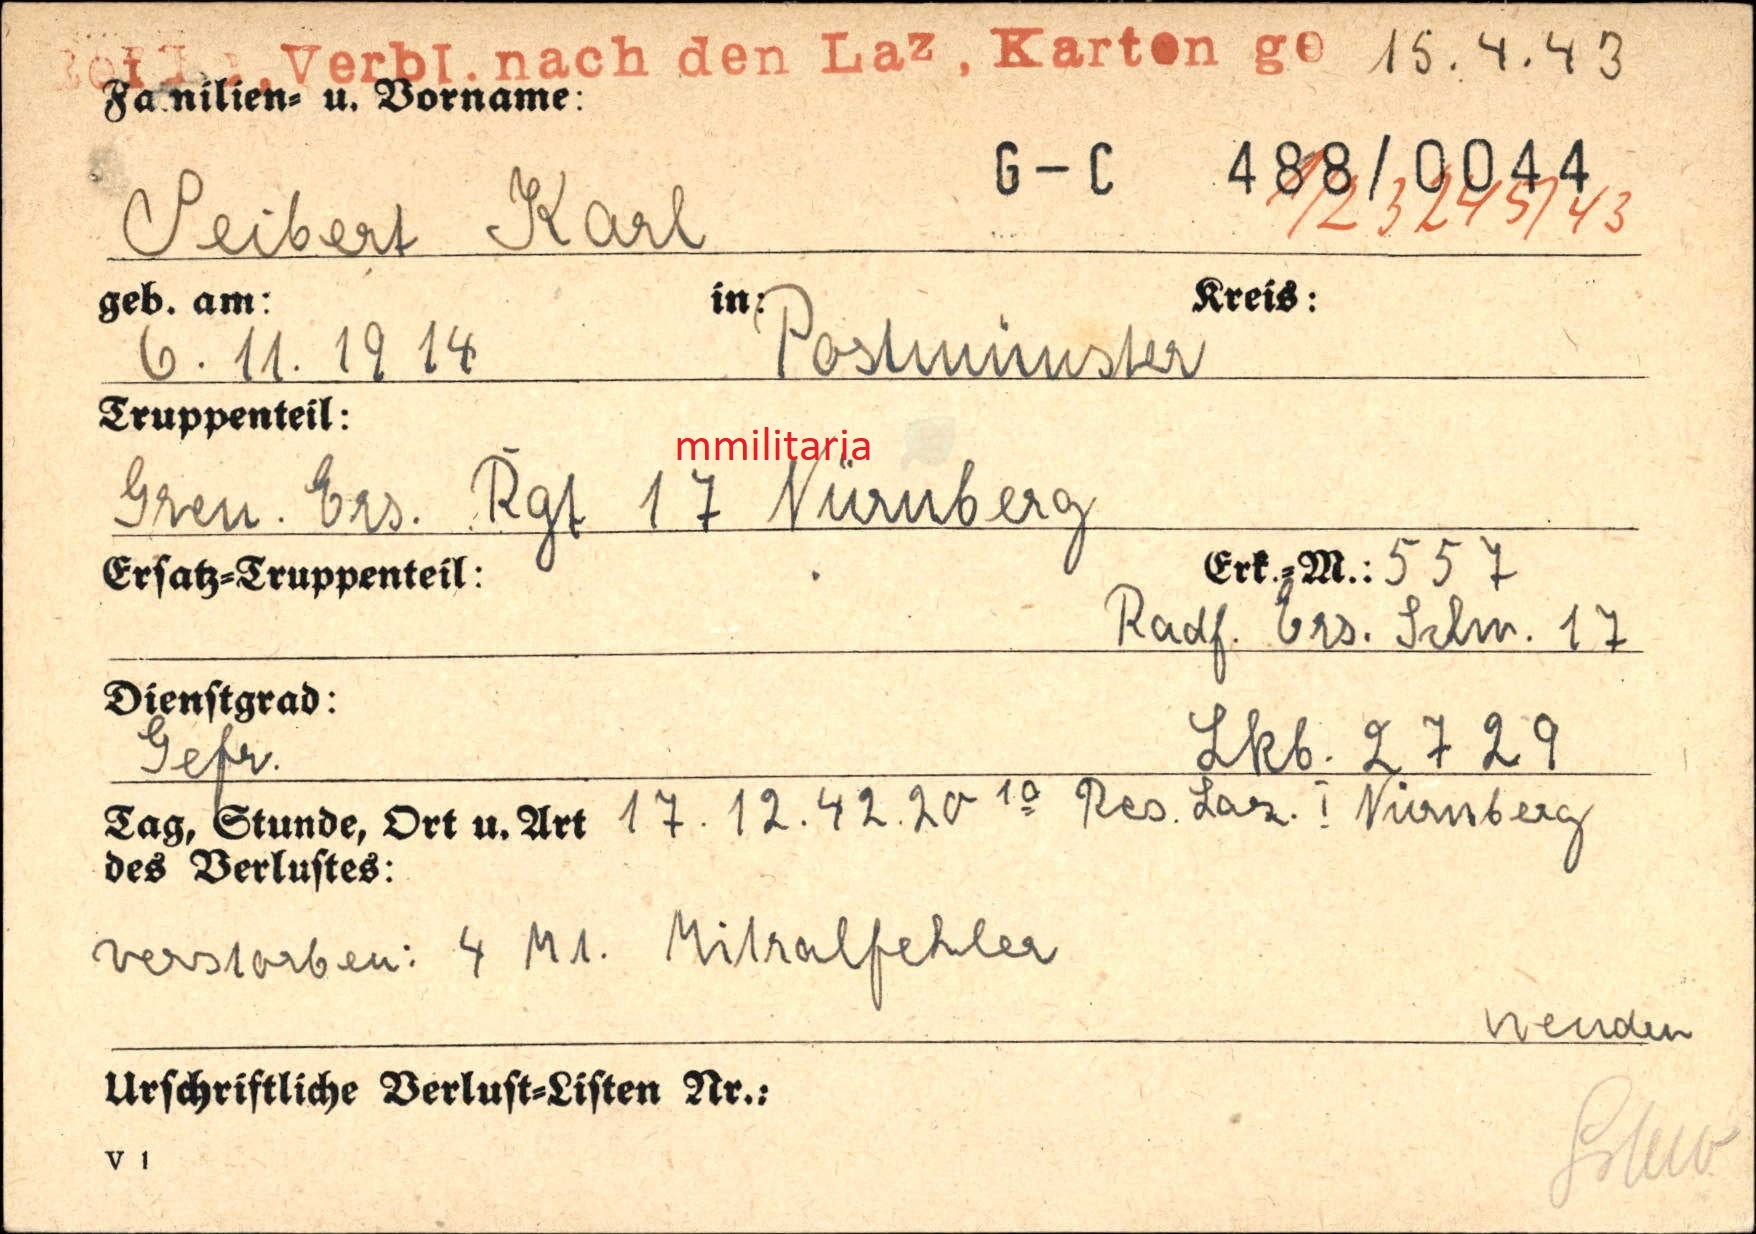 Verbl. nach den Laz, Karten ge 15.4.43
Familien- u. Vorname:
G-C 488/0044
Seibert Karl
geb. am: in: Kreis:
6. 11. 1914 Postmünster
Truppenteil:
mmilitaria
Gren. Ers. Rgt 17 Nürnberg
Ersatz-Truppenteil: Erk.-M.: 557
Radf. Ers. Schw. 17
Dienstgrad:
Gefr. Lkb. 2729
Tag, Stunde, Ort u. Art 17.12.42.20 10 Res. Laz. I Nürnberg
des Verlustes:
verstorben: 4 M1. Mitralfehler
wenden
Urschriftliche Verlust-Listen Nr.:
V 1